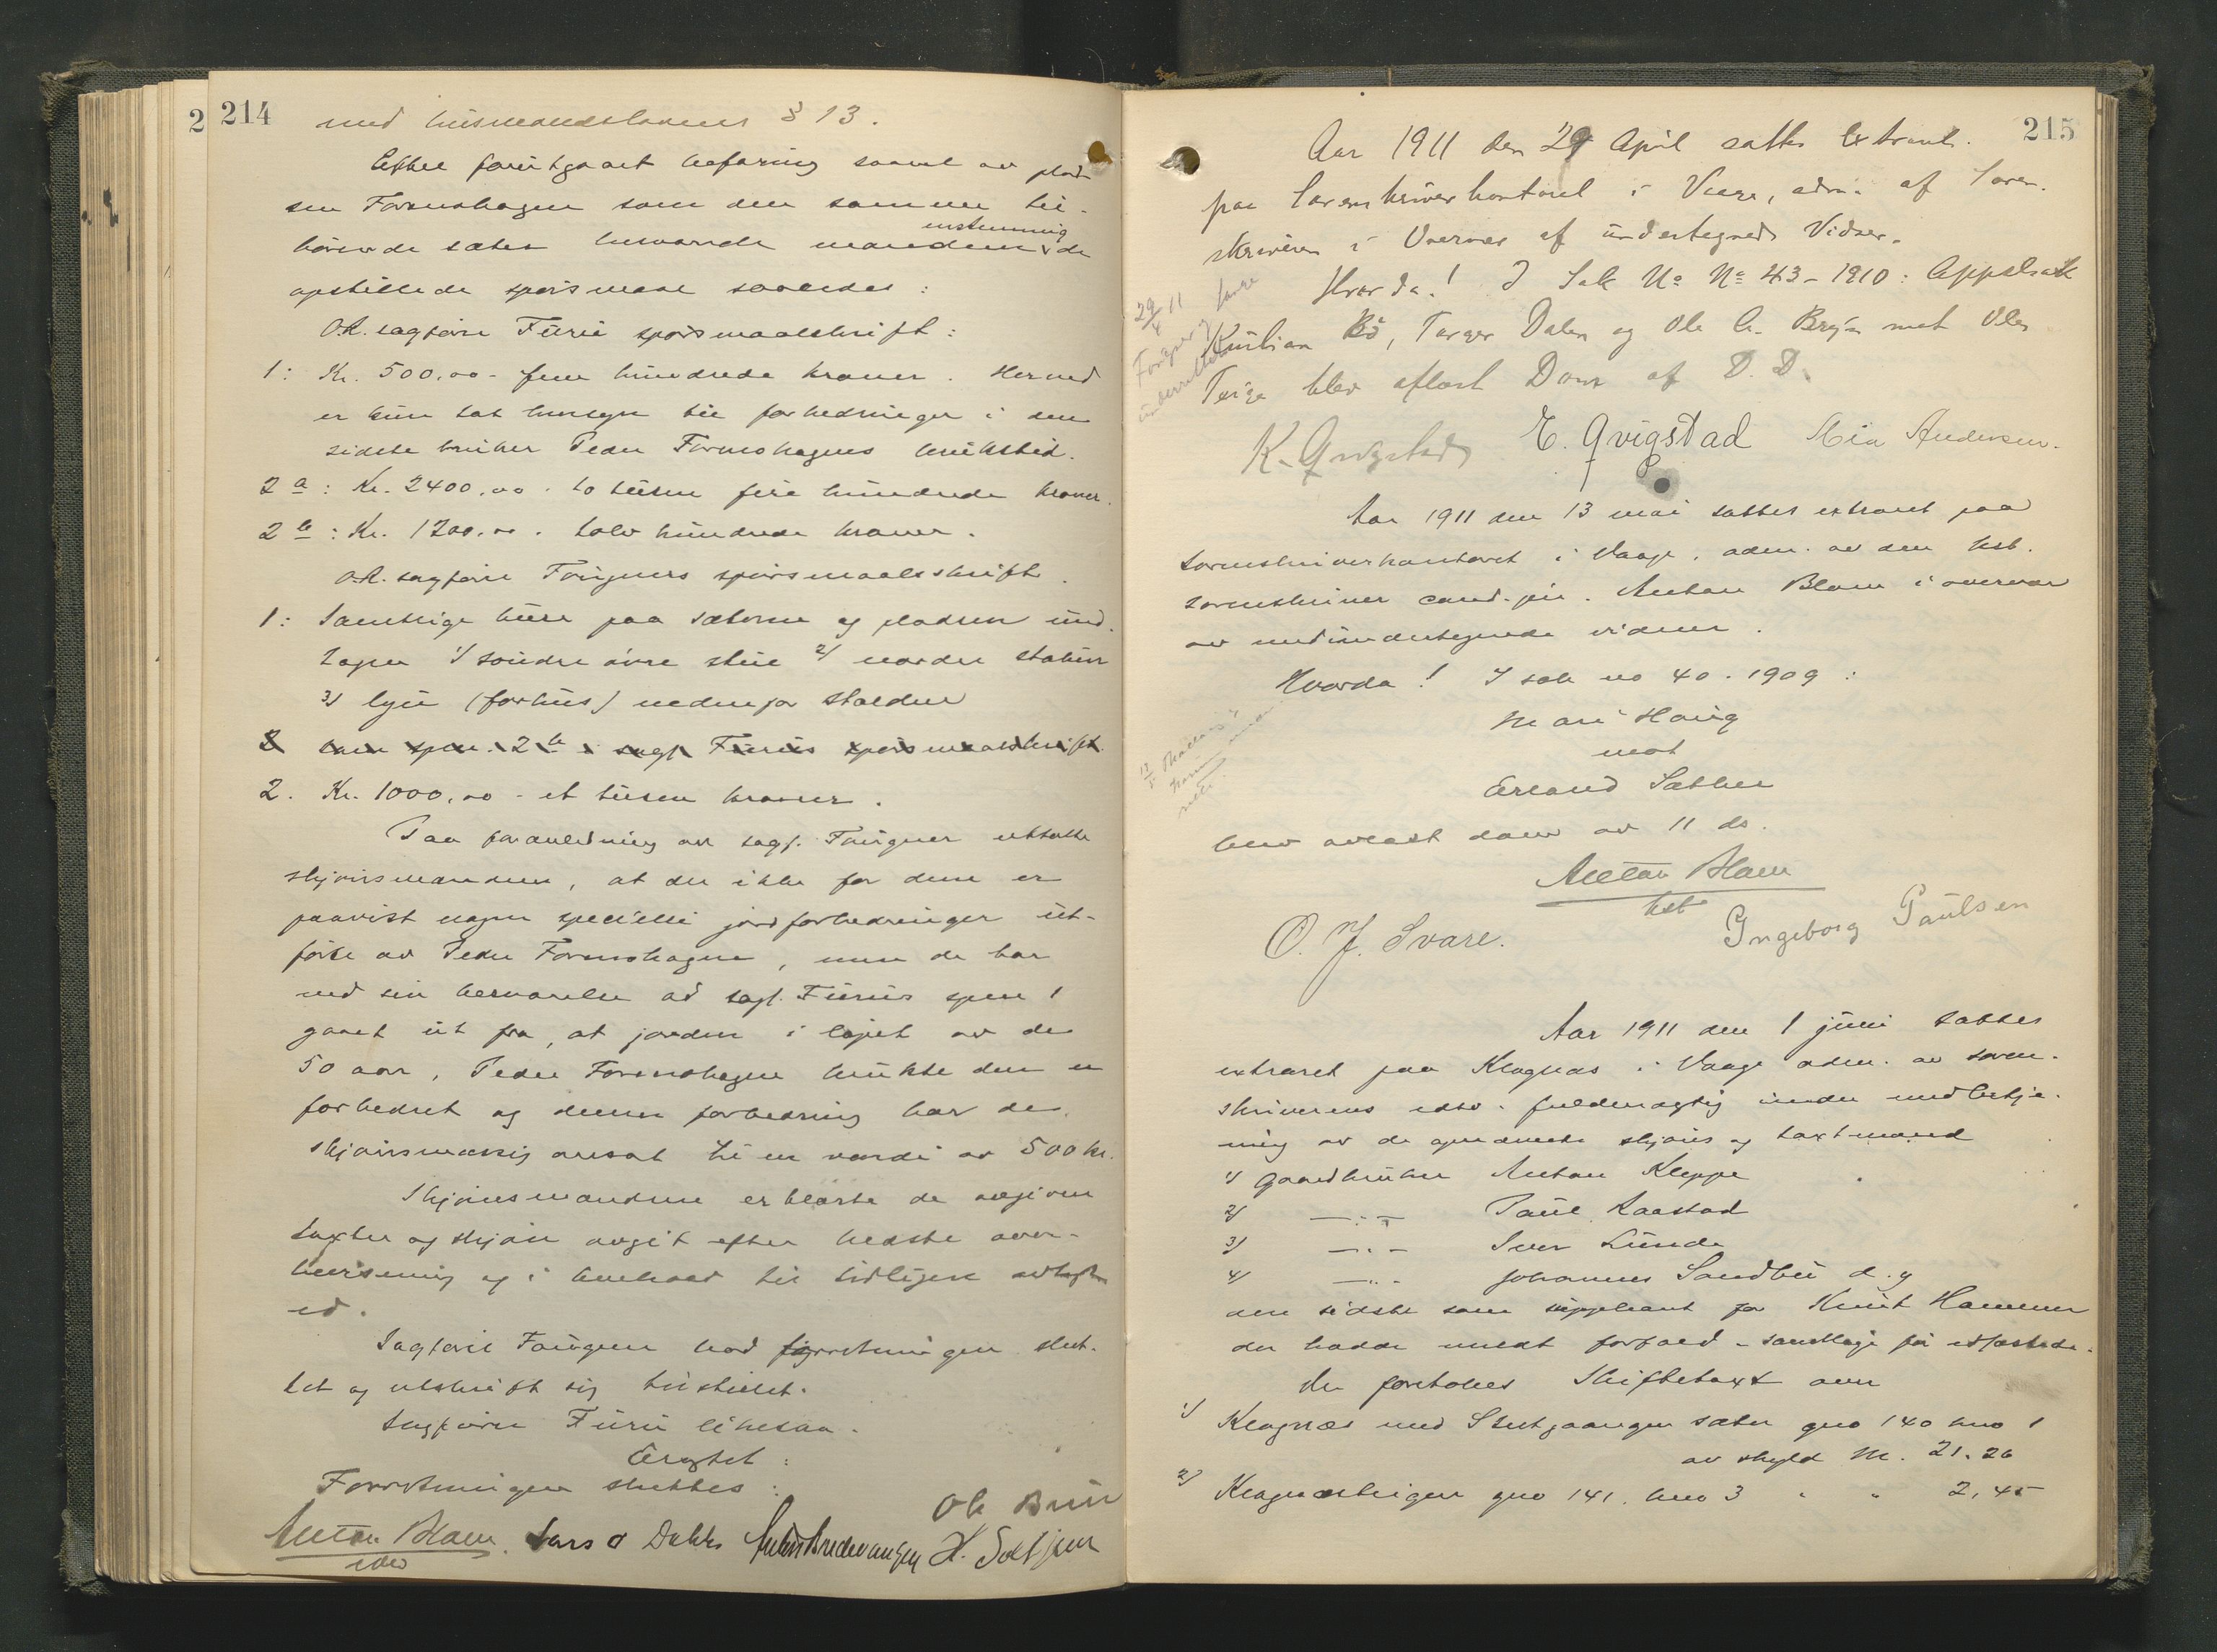 214
med husmandslovens § 13.
Efter forutgaaet befaring saavel av plad-
sen Formohagen som den samme til-
hörende sæter besvarede mændene enstemmig de
opstillede spörsmaal saaledes:
O.R. sagförer Furu spörsmaalskrift:
1: Kr. 500,00 - fem hundrede kroner. Herved
er kun tat hensyn til forbedringer i den
sidste bruker Peder Formohagens brukstid.
2 a: Kr. 2400,00 - to tusen fire hundrede kroner.
2 b: Kr. 1200,00 - tolv hundrede kroner.
O.R. sagförer Fougners spörsmaalsskrift.
1: Samtlige huse paa sæteren og pladsen und-
tagen 1/ söndre övre stue 2/ nordre stabur
3/ lyu (forhus) nedenfor stalden
2 som spm. 2 b i sagf. Furus spörsmaalskrift.
2. Kr. 1000,00 - et tusen kroner.
Paa foranledning av sagf. Fougner uttalte
skjönsmændene, at der ikke for dem er
paavist nogen specielle jordforbedringer ut-
förte av Peder Formohagen, men de har
ved sin besvarelse av sagf. Furus spm 1
gaaet ut fra, at jorden i löpet av de
50 aar, Peder Formohagen brukte den er
forbedret og denne forbedring har de
skjönsmæssig ansat til en værdi av 500 kr.
Skjönsmændene erklærte de avgivne
taxter og skjön avgit efter bedste over-
bevisning og i henhold til tidligere avlagt
ed.
Sagförer Fougner bad forretningen slut-
tet og utskrift sig tilstillet.
Sagförer Furu likesaa.
Eragtet:
Forretningen sluttes:
Ole Bruu
Anton Blom Lars O Dahle Bredevangen H. Solhjem
edsv
215
Aar 1911 den 29 April sattes Extraret.
paa Sorenskriverkontoret i Vaage, adm. af Soren-
skriveren i Overvær af undertegnede Vidner.
Hvorda! I Sak No No 43-1910: Appelsak
Kristian Bö, Torger Dalen og Ole A. Bryn mot Oles
Teige blev aflast Dom af D. D.
29/4 11 Fougner og Furu underrettet
K. Qvigstad E. Qvigstad Mia Andersen.
Aar 1911 den 13 mai sattes extraret paa
sorenskriverkontoret i Vaage, adm. av den kst.
sorenskriver cand. jur. Anton Blom i overvær
av medundertegnede vidner.
Hvorda! I sak no 40. 1909:
Mari Haug
mot
Erland Sæther
blev avlæst dom av 11 ds.
Anton Blom
kst
O. J. Svare. Ingeborg Paulsen
Aar 1911 den 1 juni sattes
extraret paa Klognæs i Vaage adm. av soren-
skriverens edsv. fuldmægtig under medbetje-
ning av de opnævnte skjöns og taxtmænd
1/ Gaardbruker Anton Kleppe
2/ —"— Paul Kaastad
3/ —"— Iver Lunde
4/ —"— Johannes Sandbu d. y
den sidste som suppleant for Knut Hammer
der hadde meldt forfald - samtlige för edfæstede.
Der foretokes Skiftetaxt over
1/ Klognæs med Slutgaangen sæter gno 140 bno 1
av skyld M. 21.26
2/ Klognæsteigen gno 141. bno 3 " " 2,45